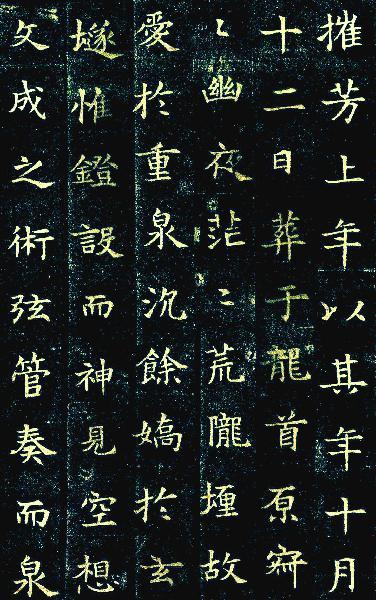 摧芳上年以其年十月
十二日葬于龍首原寂
〻幽夜茫〻荒隴埋故
愛於重泉沉餘嬌於玄
𡑞惟鐙設而神見空想
文成之術弦管奏而泉